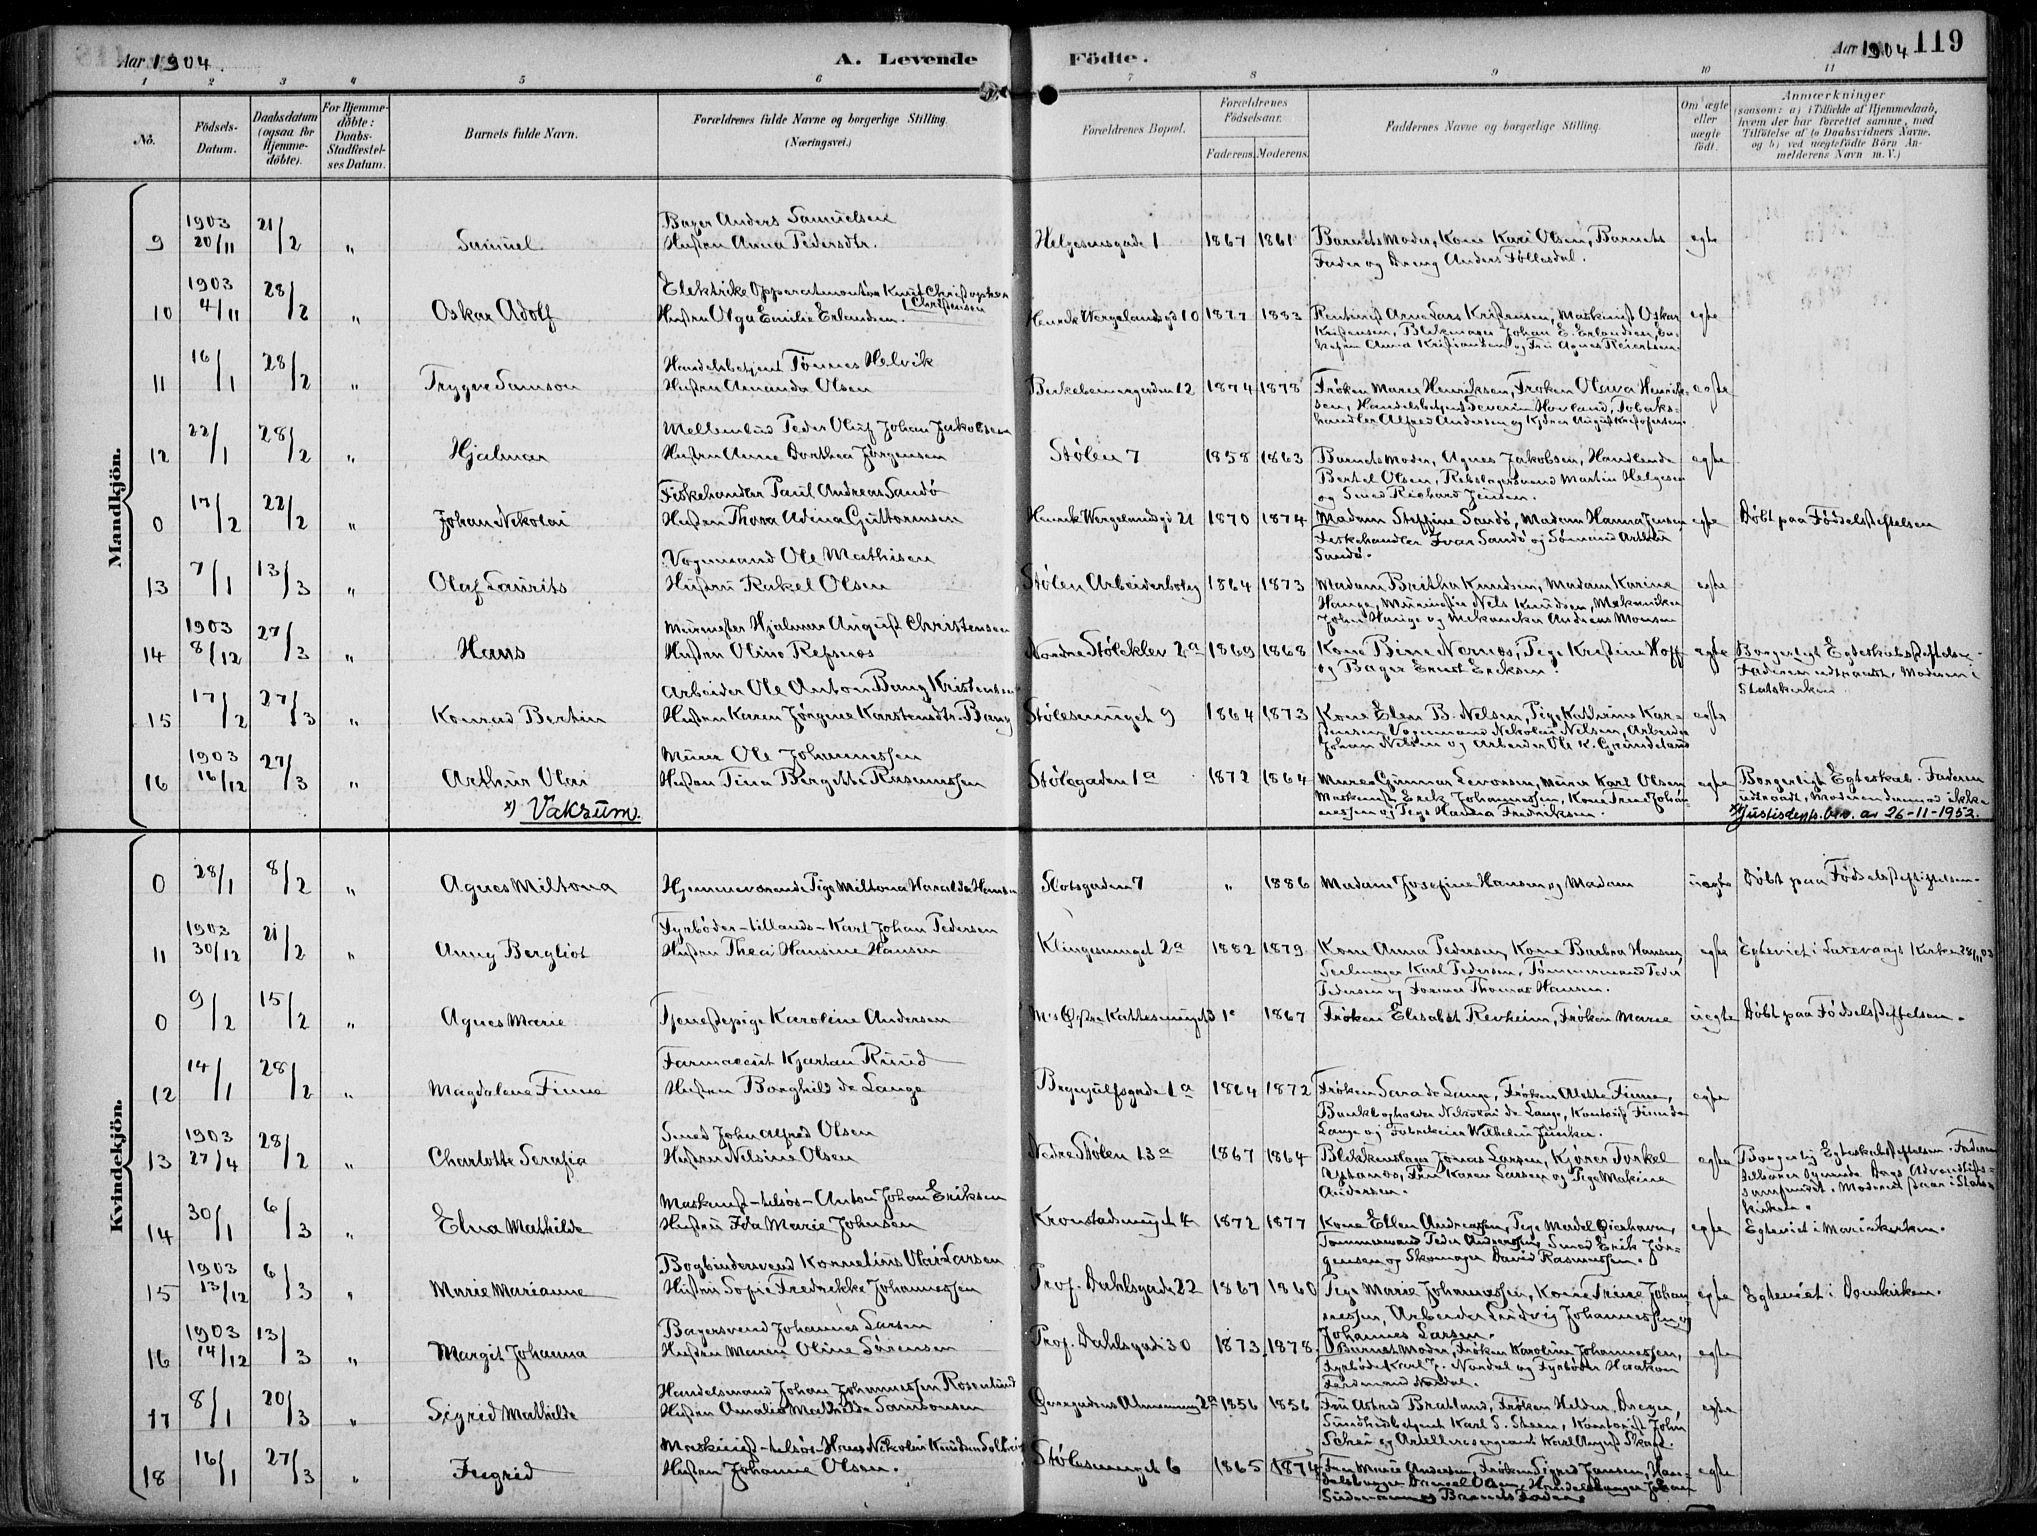 Aar 1904.
A. Levende
Födte.
Aar 1904
119
1 2 3 4 5 6 7 8 9 10 11
No.
Födsels-Datum.
Daabsdatum (ogsaa for Hjemmedöbte).
For Hjemmedöbte: Daabs-Stadfæstelses Datum.
Barnets fulde Navn.
Forældrenes fulde Navne og borgerlige Stilling.
(Næringsvei.)
Forældrenes Bopæl.
Forældrenes Födselsaar.
Faderens. Moderens.
Faddernes Navne og borgerlige Stilling.
Om ægte eller uægte födt.
Anmærkninger
(saasom: a) i Tilfælde af Hjemmedaab, hvem der har forrettet samme, med Tilföielse af to Daabsvidners Navne, og b) ved uægtefödte Börn Anmelderens Navn m. V.)
Mandkjön.
9 1903 20/11 21/2 " Samuel
Bager Anders Samuelsen
Hustru Anna Pedersdtr.
Helgesensgade 1 1867 1861
Barnets Moder, Kone Kari Olsen, Barnets
Fader og Dreng AndersFöllesdal.
egte
10 1903 4/11 28/2 " Oskar Adolf
Elektrike Apparatmontör Knut Christopher
Christensen
Hustru Olga Emilie Erlandsen.
Henrik Wergelandsgd 10 1877 1883
Rentenist Arne Lars Kristensen, Maskinist Oskar
Kristensen, Blikmager Johan E. Erlandsen, En-
kefru Anna Kristiansen og Frü Agnes Reiertsen.
egte
11 16/1 28/2 " Trygve Samson
Handelsbetjent Tönnes Helvik
Hustru Amanda Olsen
Birkebeinergaden 12 1874 1878
Fröken Marie Henriksen, Fröken Olava Henrik-
sen, Handelsbetjent Severin Hovland, Tobaks-
handler Alfred Andersen og Kjörer August Kristofersen.
egte
12 22/1 28/2 " Hjalmar
Mellembud Peder Oluf Johan Jakobsen
Hustru Anne Dorthea Jörgensen
Stölen 7 1858 1863
Barnets Moder, Agnes Jakobsen, Handlende
Bertel Olsen, Rebslagersvend Martin Helgesen
og Smed Richard Jensen.
egte
0 13/2 22/2 " Johan Nikolai
Fiskehandler Paul Andreas Sandö
Hustru Thora Adina Guttormsen
Henrik Wergelandsgd 21 1870 1874
Madam Steffine Sandö, Madam Hanna Jensen
Fiskehandler Ivar Sandö og Sömand Arthur
Sandö.
egte Döbt paa Födselsstiftelsen
13 7/1 13/3 " Olaf Laurits
Vognmand Ole Mathisen
Hustru Rakel Olsen
Stölen Arbeiderbolig 1864 1873
Madam Britha Knudsen, Madam Karine
Hauge, Murmester Nels Knudsen, Mekaniker
John Hauge og Mekaniker Andreas Monsen
egte
14 1903 8/12 27/3 " Hans
Murmester Hjalmar August Christensen
Hustru Oline Refsnes
Nordre Stöleklev 2a 1869 1868
Kone Bine Nernes, Pige Kristine Hoff
og Bager Ernst Eriksen.
egte Borgerligt Egteskabsstiftelse.
Faderen udtraadt, Moderen i
Statskirken
15 17/2 27/3 " Konrad Bertin
Arbeider Ole Anton Bang Kristensen
Hustru Karen Jörgine Karstensdtr. Bang
Stölesmuget 9 1864 1873
Kone Elen B. Nelsen, Pige Kathrine Kar-
stensen, Vognmand Nikolai Nelsen, Arbeider
Johan Nelsen og Arbeider Ole K. Grindeland
egte
16 1903 16/12 27/3 " Arthur Olai
x) Vaksum.
Murer Ole Johannessen
Hustru Tina Bergitte Rasmussen
Stölegaden 1a 1872 1864
Murer Gunnar Sevorsen, Murer Karl Olsen
Maskinist Erik Johannessen, Kone Trine Johan-
nessen og Pige Hanna Fredriksen.
egte Borgerligt Egteskab. Faderen
udtraadt, Moderen derimod ikke
x) Justisdepts. bev. av 26-11-1952.
Kvindekjön.
0 28/1 8/2 " Agnes Miltona
Hjemmeværende Pige Miltona Haralda Hansen
Slotsgaden 7 " 1886
Madam Josefine Hansen og Madam
uegte Döbt paa Födselsstiftelsen.
11 1903 30/12 21/2 " Anny Bergliot
Fyrböder-tillands-Karl Johan Pedersen
Hustru Thea Hansine Hansen
Klingesmuget 2a 1882 1879
Kone Anna Pedersen, Kone Barbra Hansen,
Seilmager Karl Pedersen, Tömmermand Peder
Pedersen og Former Thomas Hansen.
egte Egteviet i Laxevaags Kirke 28/11 03
0 9/2 15/2 " Agnes Marie
Tjenestepige Karoline Andersen
1867
Fröken Elisabet Revheim, Fröken Marie
uegte Döbt paa Födselsstiftelsen.
12 14/1 28/2 " Magdalene Finne
Farmaceut Kjartan Ruud
Hustru Borghild de Lange
Brynjulfsgade 1a 1864 1872
Fröken Sara de Lange, Fröken Alette Finne,
Bankbogholder Nikolai de Lange, Kontorist Finn de
Lange og Fabrikeier Wilhelm Junker.
egte
13 1903 27/4 28/2 Charlotte Serafia
Smed John Alfred Olsen
Hustru Nelsine Olsen
Nedre Stölen 13a 1867 1864
Blikkenslager Jonas Larsen, Kjörer Torkel
Ystanes, Frü Karen Larsen og Pige Makine
Andersen.
egte Borgerlig Egteskabsstiftelsen. Faderen
tilhører Syvende Dags Adventist-
samfundet. Moderen staar i Stats-
kirken.
14 30/1 6/3 " Elna Mathilde
Maskinist-tilsös-Anton Johan Eriksen
Hustru Ida Marie Johnsen
Kronstadsmuget 4 1872 1877
Kone Ellen Andreassen, Pige Mardel
Tömmermand Peder Andreassen, Smed Erik Jör-
gensen og Skomager David Rasmussen.
egte Egteviet i Mariekirken.
15 1903 13/12 6/3 " Marie Marianne
Bogbindersvend Kornelius Olai Larsen
Hustru Sofie Fredrikke Johannessen
Prof. Dahlsgade 22 1867 1860
Pige Marie Johannessen, Kone Trine Johan-
nessen, Arbeider Ludvig Johannessen og
Johannes Larsen.
egte Egteviet i Domkirken.
16 1903 14/12 13/3 " Margit Johanna
Bagersvend Johannes Larsen
Hustru Maren Oline Sörensen
Prof. Dahlsgade 30 1873 1878
Barnets Moder, Fröken Karoline Johannessen,
Fyrböder Karl J. Nordal og Fyrböder Haakon
Ferdinand Nordal.
egte
17 8/1 20/3 " Sigrid Mathilde
Handelsmand Johan Johannessen Rosenlund
Hustru Amalie Mathilde Samsonsen
Övregadens Almenning 2a 1856 1856
Frü Astrid Bratland, Fröken Helder Dreyer,
Sundhedsbetjent Karl S. Steen, Kontorist John
Schei og Artillerisergeant Karl August Skage.
egte
18 16/1 27/3 " Ingrid
Maskinist-tilsös-Hans Nikolai Knudsen
Hustru Johanne Olsen.
Stölesmuget 6 1865 1874
Frü Marie Andersen, Fröken Sigrid Jansen, Han-
delsborger Olsen, Handelsborger Johan
og Barnets Fader.
egte